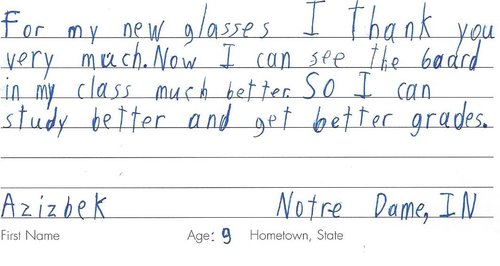 For my new glasses I Thank you
very much. Now I can see the board
in my class much better. So I can
study better and get better grades.
Azizbek Notre Dame, IN
First Name Age: 9 Hometown, State